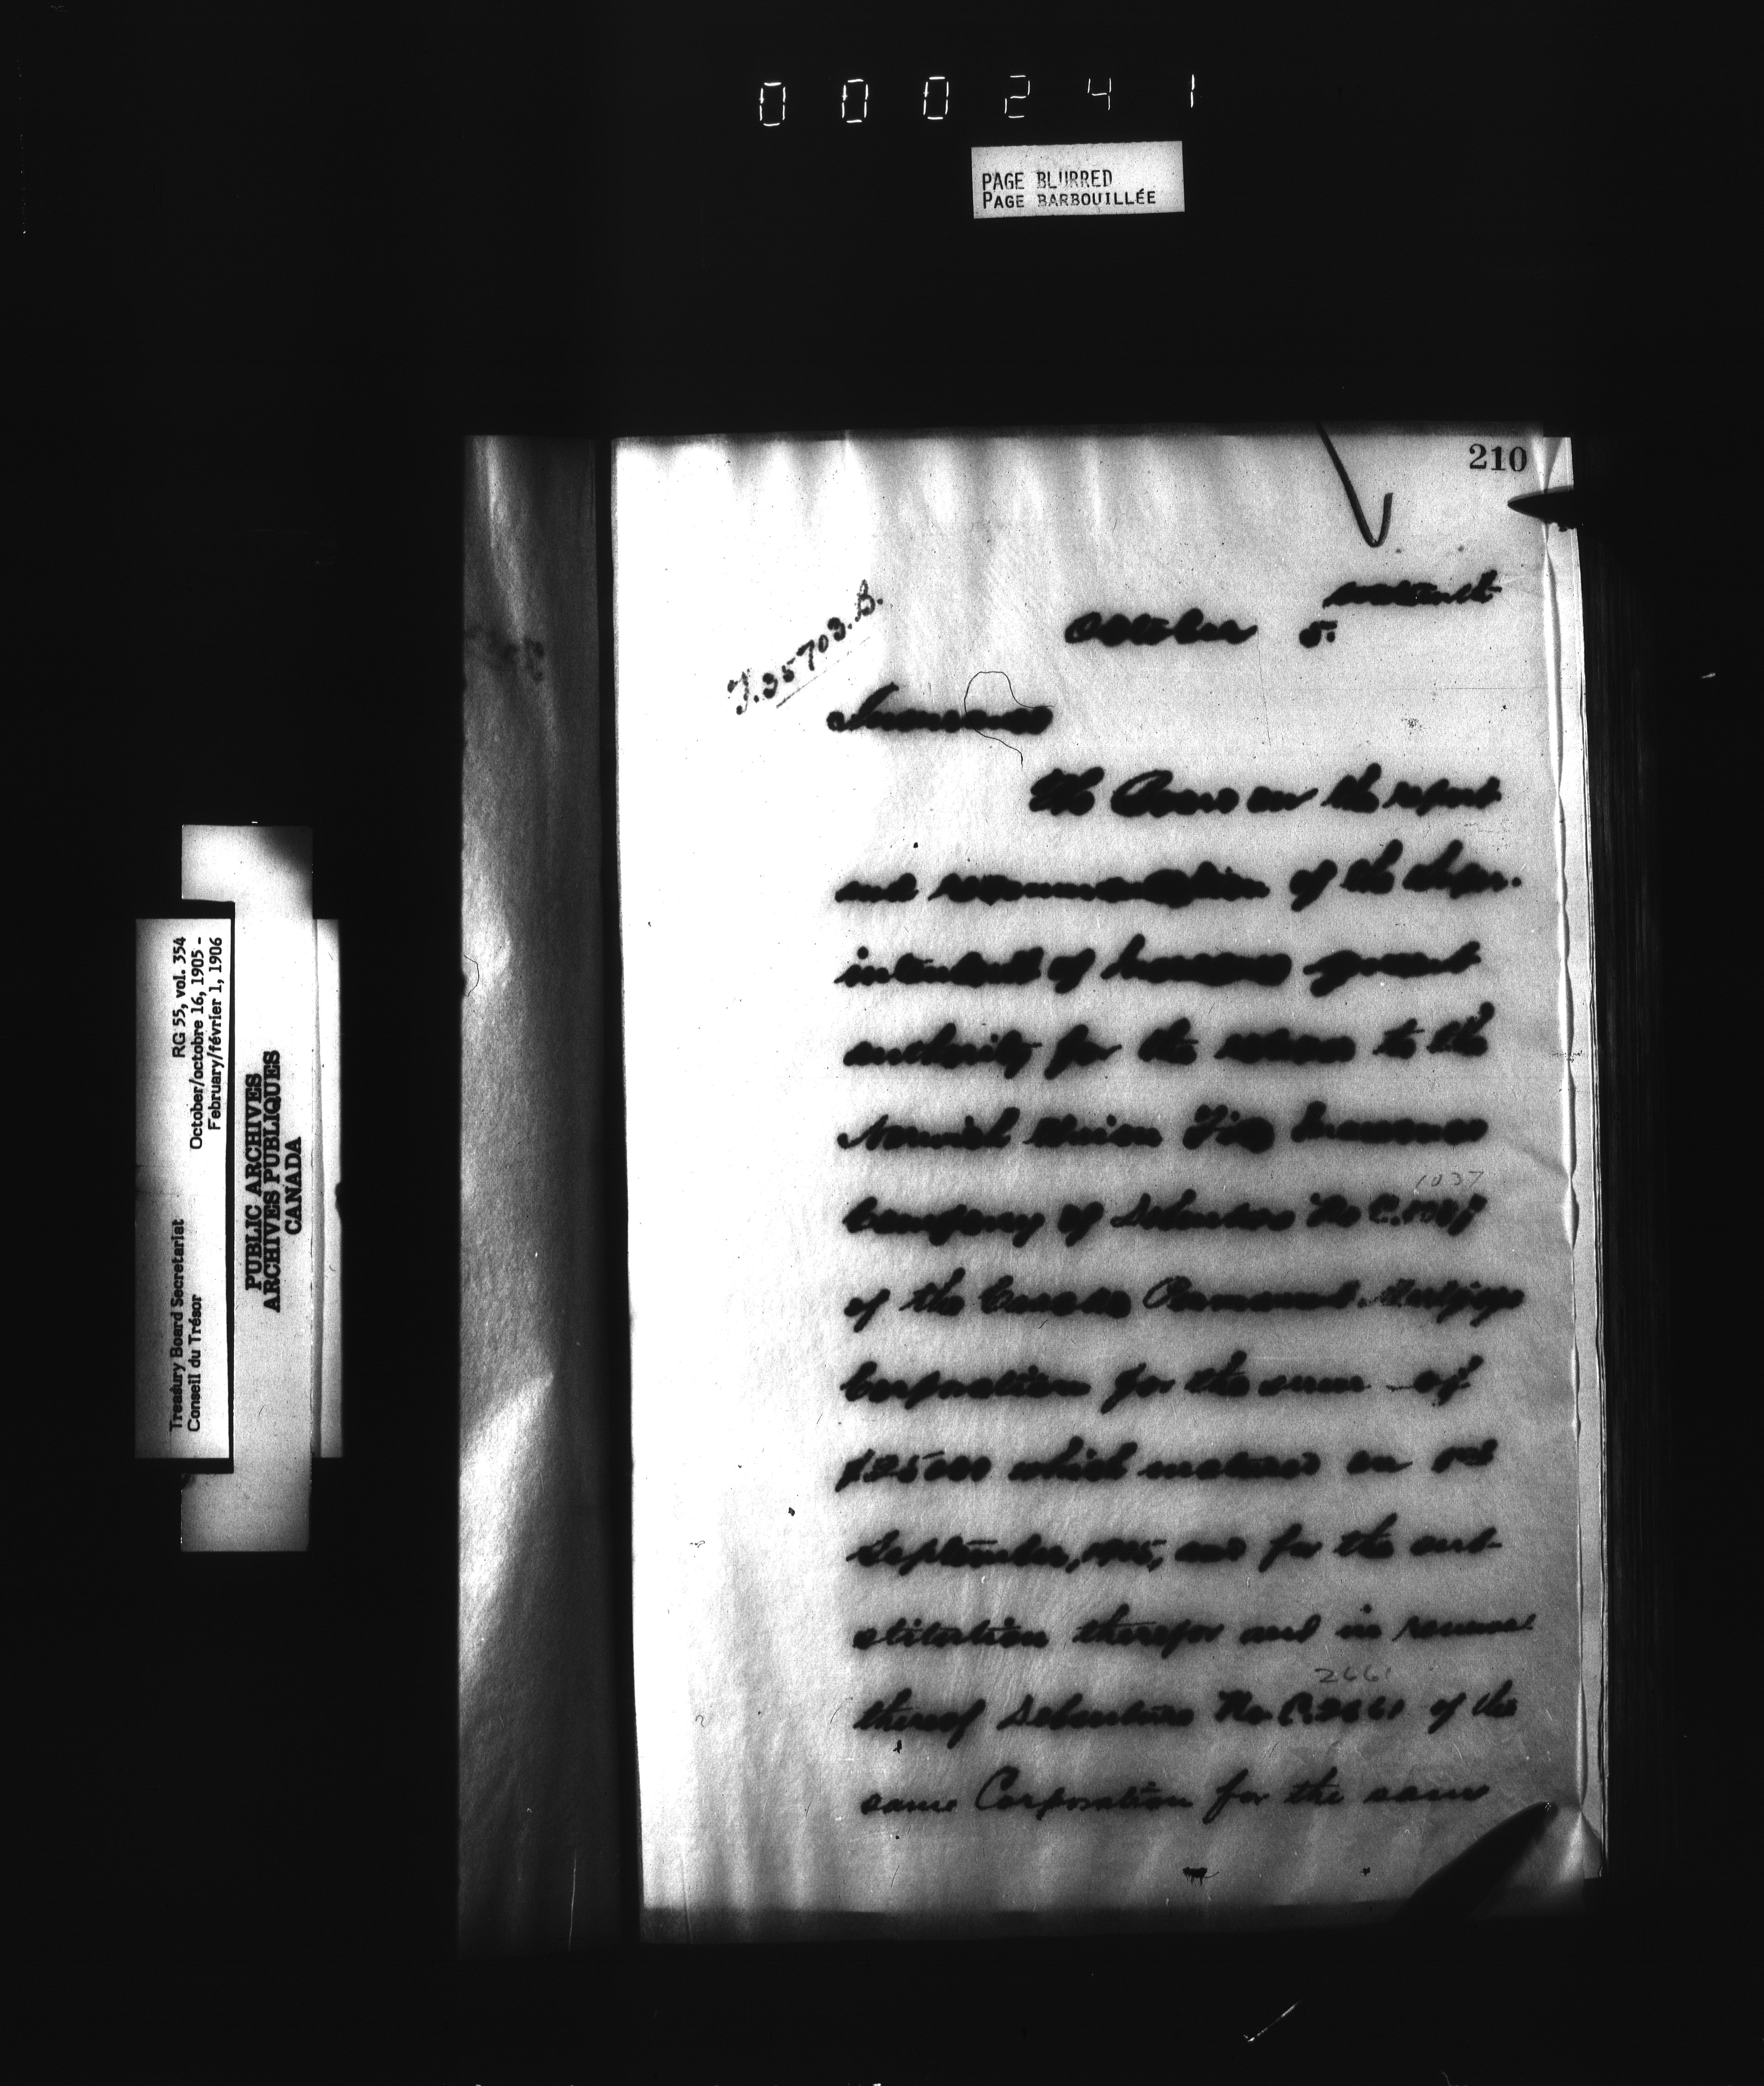 000241
PAGE BLURRED
PAGE BARBOUILLÉE
Treasury Board Secretariat RG 55, vol. 354
Conseil du Trésor October/octobre 16, 1905 -
February/février 1, 1906
PUBLIC ARCHIVES
ARCHIVES PUBLIQUES
CANADA
210
October 5.
T.35703.B.
Insurance
The Board on the report
and recommendation of the Super-
intendent of Insurance grant
authority for the release to the
Norwich Union Fire Insurance
1037
Company of Debenture No C.1037
of the Canada Permanent Mortgage
Corporation for the sum of
$25000 which matured on
September, 1905, and for the sub-
stitution therefor and in renewal
2661
thereof Debenture No C.2661 of the
same Corporation for the same